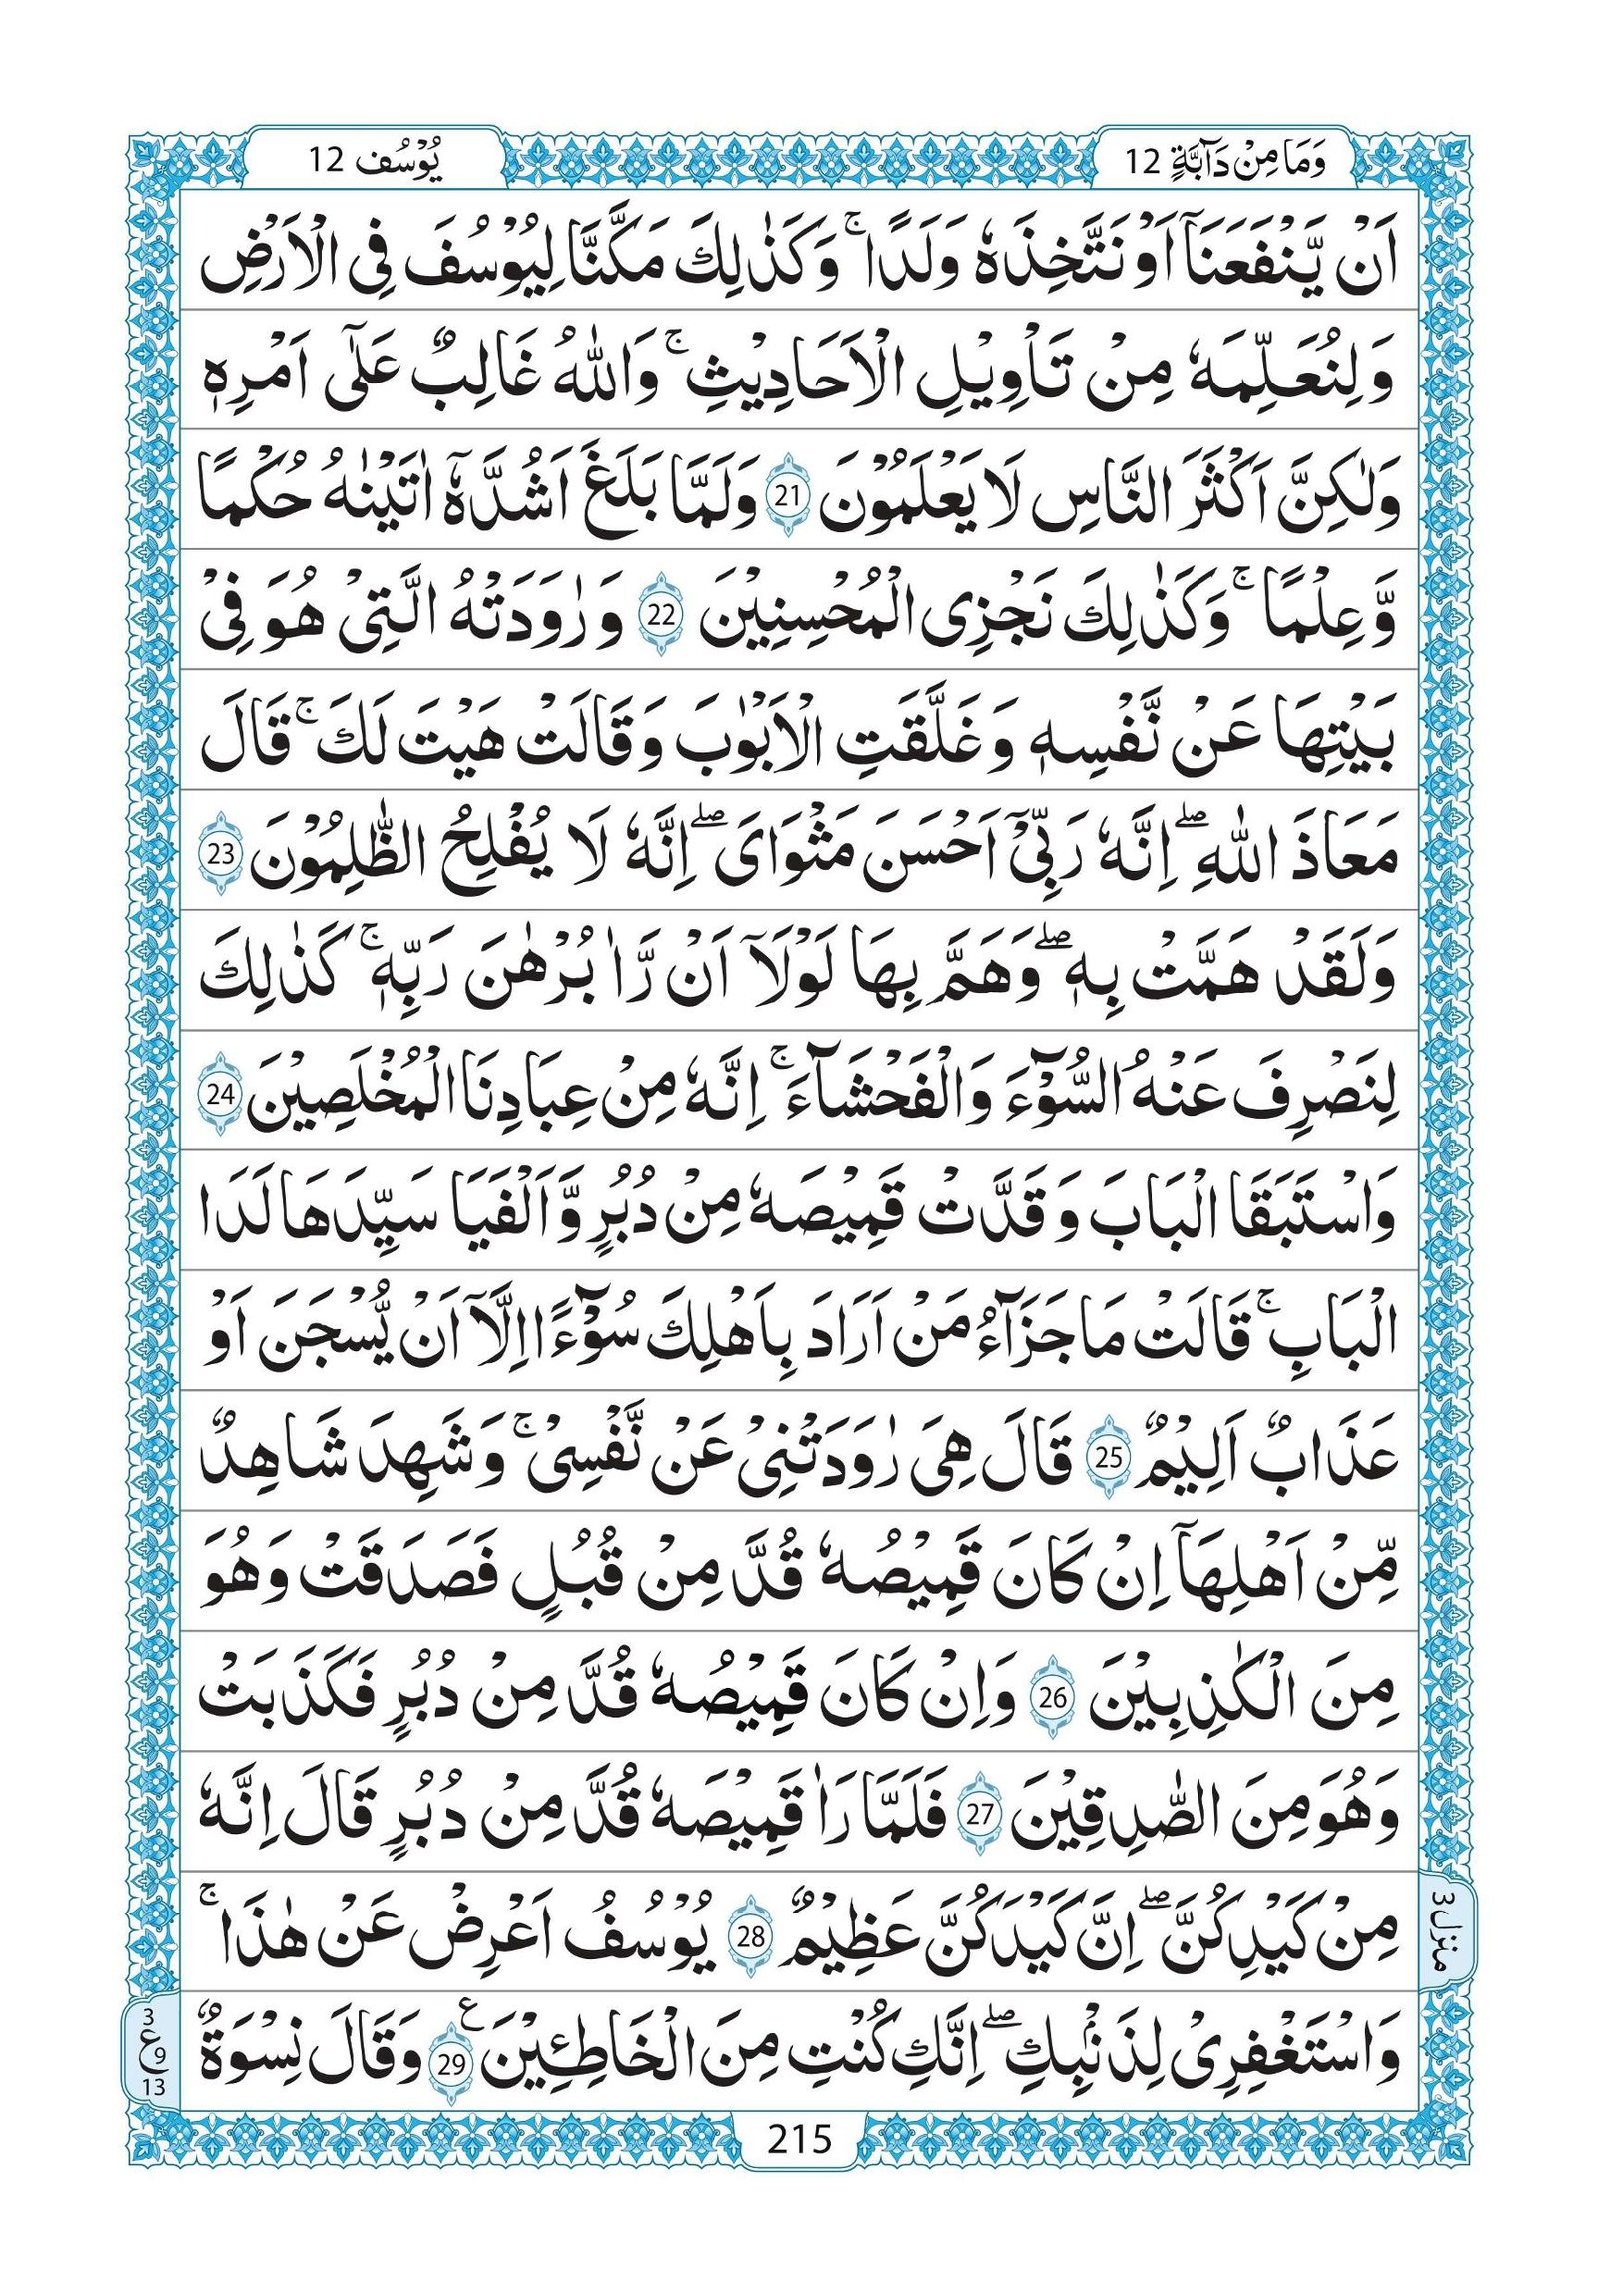 وَمَا مِنْ دَآبَّةٍ 12
يُوْسُف 12
اَنْ يَّنْفَعَنَآ اَوْ نَتَّخِذَهٗ وَلَدًا ۚ وَكَذٰلِكَ مَكَّنَّا لِيُوْسُفَ فِى الْاَرْضِ
وَلِنُعَلِّمَهٗ مِنْ تَاْوِيْلِ الْاَحَادِيْثِ ۚ وَاللّٰهُ غَالِبٌ عَلٰٓى اَمْرِهٖ
وَلٰكِنَّ اَكْثَرَ النَّاسِ لَا يَعْلَمُوْنَ 21 وَلَمَّا بَلَغَ اَشُدَّهٗٓ اٰتَيْنٰهُ حُكْمًا
وَّعِلْمًا ۚ وَكَذٰلِكَ نَجْزِى الْمُحْسِنِيْنَ 22 وَرٰوَدَتْهُ الَّتِىْ هُوَ فِىْ
بَيْتِهَا عَنْ نَّفْسِهٖ وَغَلَّقَتِ الْاَبْوٰبَ وَقَالَتْ هَيْتَ لَكَ ۚ قَالَ
مَعَاذَ اللّٰهِ ۖ اِنَّهٗ رَبِّىْٓ اَحْسَنَ مَثْوَاىَ ۖ اِنَّهٗ لَا يُفْلِحُ الظّٰلِمُوْنَ 23
وَلَقَدْ هَمَّتْ بِهٖ ۖ وَهَمَّ بِهَا لَوْلَآ اَنْ رَّاٰ بُرْهٰنَ رَبِّهٖ ۚ كَذٰلِكَ
لِنَصْرِفَ عَنْهُ السُّوْٓءَ وَالْفَحْشَآءَ ۚ اِنَّهٗ مِنْ عِبَادِنَا الْمُخْلَصِيْنَ 24
وَاسْتَبَقَا الْبَابَ وَقَدَّتْ قَمِيْصَهٗ مِنْ دُبُرٍ وَّاَلْفَيَا سَيِّدَهَا لَدَا
الْبَابِ ۚ قَالَتْ مَا جَزَآءُ مَنْ اَرَادَ بِاَهْلِكَ سُوْٓءًا اِلَّآ اَنْ يُّسْجَنَ اَوْ
عَذَابٌ اَلِيْمٌ 25 قَالَ هِىَ رٰوَدَتْنِىْ عَنْ نَّفْسِىْ ۚ وَشَهِدَ شَاهِدٌ
مِّنْ اَهْلِهَآ اِنْ كَانَ قَمِيْصُهٗ قُدَّ مِنْ قُبُلٍ فَصَدَقَتْ وَهُوَ
مِنَ الْكٰذِبِيْنَ 26 وَاِنْ كَانَ قَمِيْصُهٗ قُدَّ مِنْ دُبُرٍ فَكَذَبَتْ
وَهُوَ مِنَ الصّٰدِقِيْنَ 27 فَلَمَّا رَاٰ قَمِيْصَهٗ قُدَّ مِنْ دُبُرٍ قَالَ اِنَّهٗ
مِنْ كَيْدِكُنَّ ۖ اِنَّ كَيْدَكُنَّ عَظِيْمٌ 28 يُوْسُفُ اَعْرِضْ عَنْ هٰذَا ۚ
وَاسْتَغْفِرِىْ لِذَنْۢبِكِ ۖ اِنَّكِ كُنْتِ مِنَ الْخَاطِئِيْنَ ع 29 وَقَالَ نِسْوَةٌ
منزل 3
3
ع 9
13
215